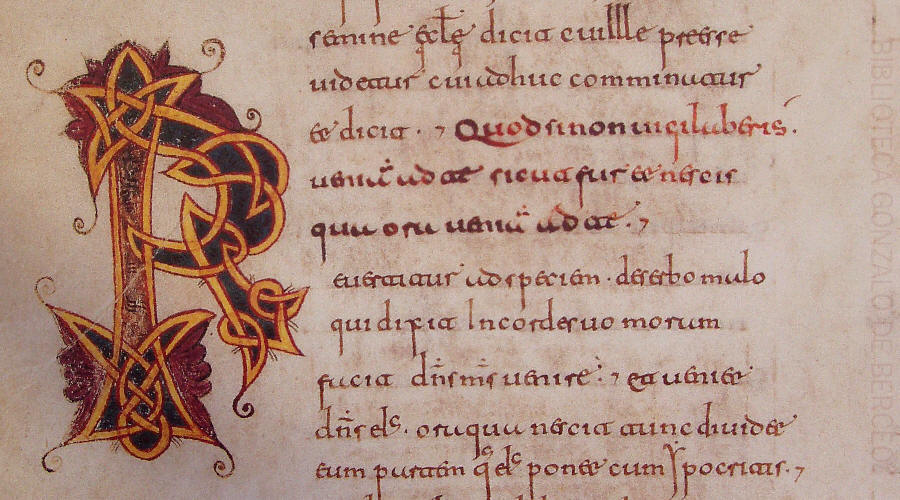 semine ęclę dicit cui ille preesse
uidetur cui adhuc comminatur
et dicit. Quod si non uigilaberis.
ueniā ad te sicut fur et nescis
qua ora ueniā ad te.
Reuertitur ad speciem. de serbo malo
qui dixit In corde suo moram
facit dn̄s ms̄ uenire. et ueniet
dn̄s ora qua nescit tunc diuidet
eum partem ponet cum ypocritas.
BIBLIOTECA GONZALO DE BERCEO